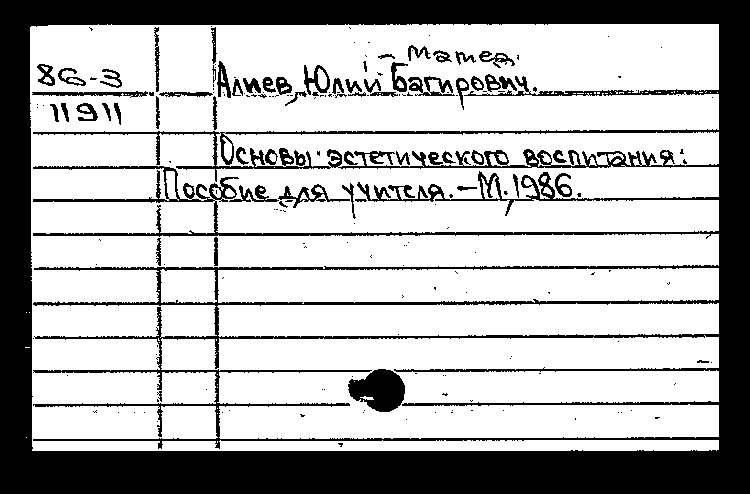 86-3
11911
Алиев, Юлий Багирович.
Основы эстетического воспитания:
Пособие для учителя. – М., 1986.